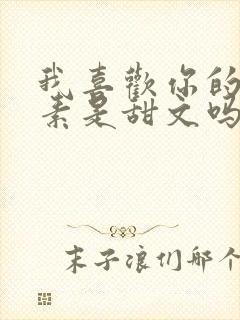 我喜歡你的
素是甜文吗
末子浪们那个